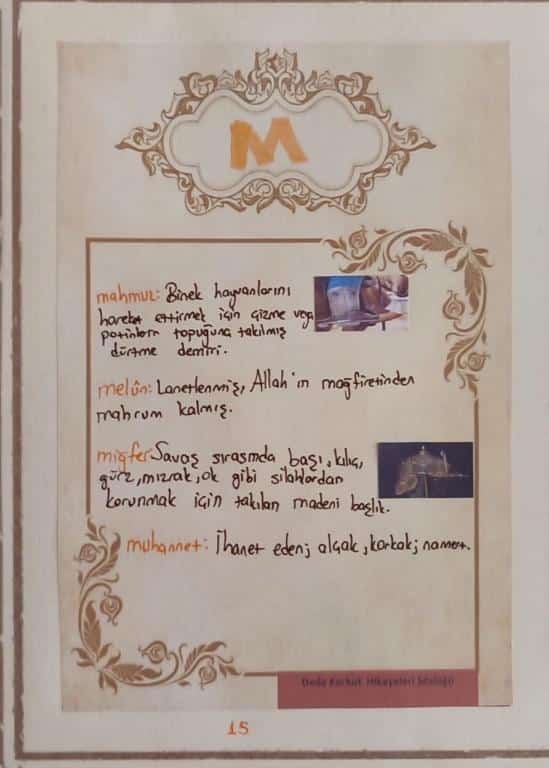 M
mahmuz: Binek hayvanlarını
hareket ettirmek için çizme veya
potinlerin topuğuna takılmış
dürtme demiri.
melûn: Lanetlenmiş, Allah'ın mağfiretinden
mahrum kalmış.
miğfer: Savaş sırasında başı, kılıç,
gürz, mızrak, ok gibi silahlardan
korunmak için takılan madeni başlık.
muhannet: İhanet eden; alçak, korkak; namert.
Dede Korkut Hikayeleri Sözlüğü
15